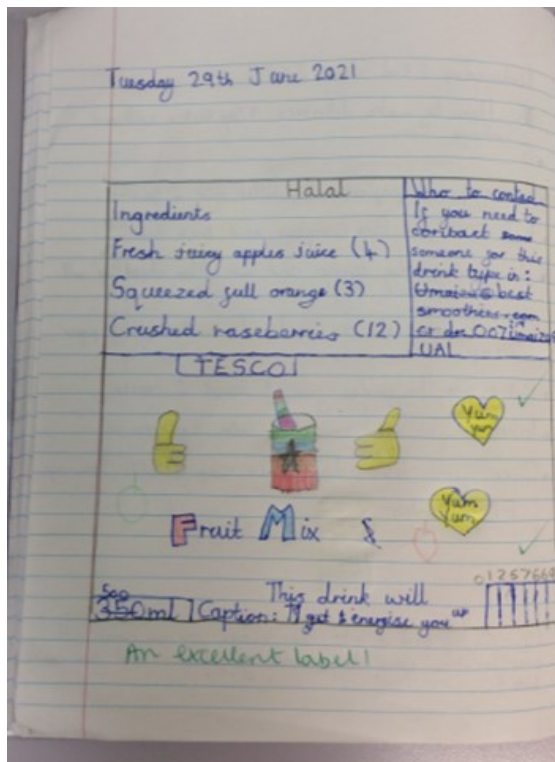 Tuesday 29th June 2021
Halal
Ingredients
Fresh juicy apples juice (4)
Squeezed full orange (3)
Crushed raseberries (12)
Who to contact
If you need to
contact some
someone for this
drink type in:
best
smoothies.com
or dr. 007
UAL
TESCO
Yum
yum
Yum
Yum
Fruit Mix &
This drink will
500
350ml
Caption: get & energise you up
An excellent label!